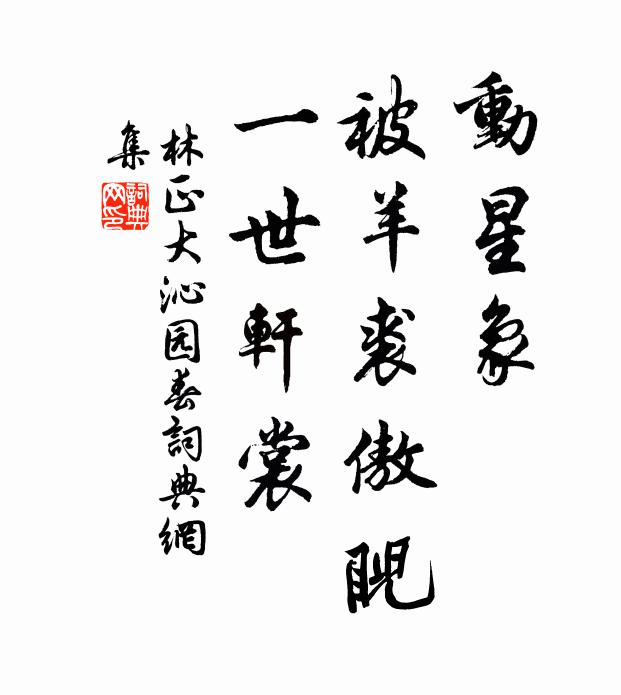 動星象
被羊裘傲睨
一世軒裳
林正大沁园春詞典網
集
詞典網印